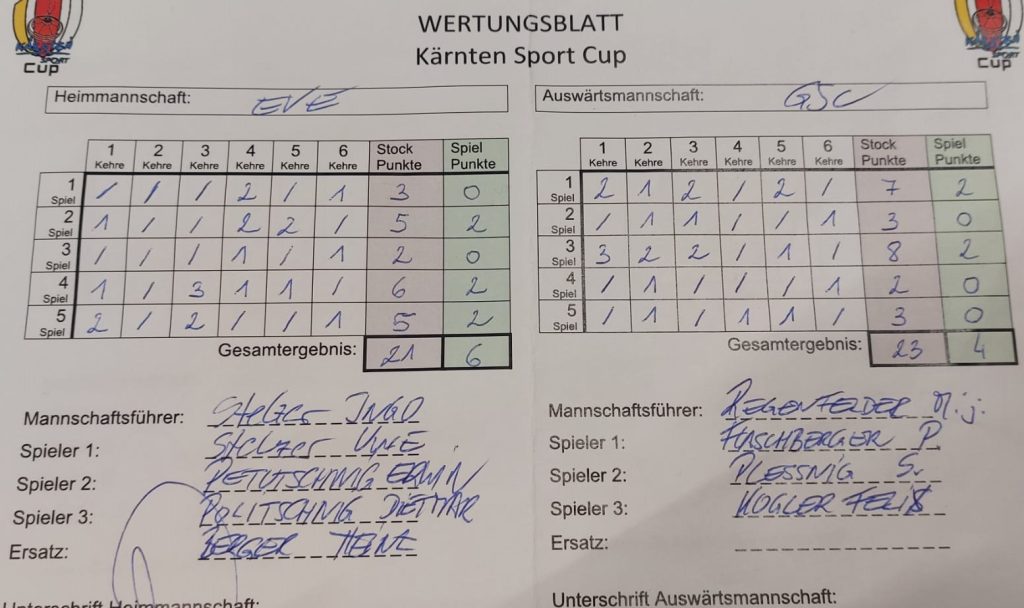 WERTUNGSBLATT
Kärnten Sport Cup
Heimmannschaft: EVE
Auswärtsmannschaft: GSC
1 Kehre 2 Kehre 3 Kehre 4 Kehre 5 Kehre 6 Kehre Stock Punkte Spiel Punkte
1 Spiel / / / 2 / 1 3 0
2 Spiel 1 / / 2 2 / 5 2
3 Spiel / / / 1 / 1 2 0
4 Spiel 1 / 3 1 1 / 6 2
5 Spiel 2 / 2 / / 1 5 2
Gesamtergebnis: 21 6
1 Kehre 2 Kehre 3 Kehre 4 Kehre 5 Kehre 6 Kehre Stock Punkte Spiel Punkte
1 Spiel 2 1 2 / 2 / 7 2
2 Spiel / 1 1 / / 1 3 0
3 Spiel 3 2 2 / 1 / 8 2
4 Spiel / 1 / / / 1 2 0
5 Spiel / 1 / 1 1 / 3 0
Gesamtergebnis: 23 4
Mannschaftsführer: Stelzer INGO
Spieler 1: Stelzer
Spieler 2: PETUTSCHNIG ERWIN
Spieler 3: POLITSCHNIG DIETMAR
Ersatz: BERGER HEINZ
Unterschrift Heimmannschaft:
Mannschaftsführer: REGENFELDER M.j.
Spieler 1: FLASCHBERGER P.
Spieler 2: PLESSNIG S.
Spieler 3: KOGLER FELIX
Ersatz:
Unterschrift Auswärtsmannschaft:
Cup
SPORT
Cup